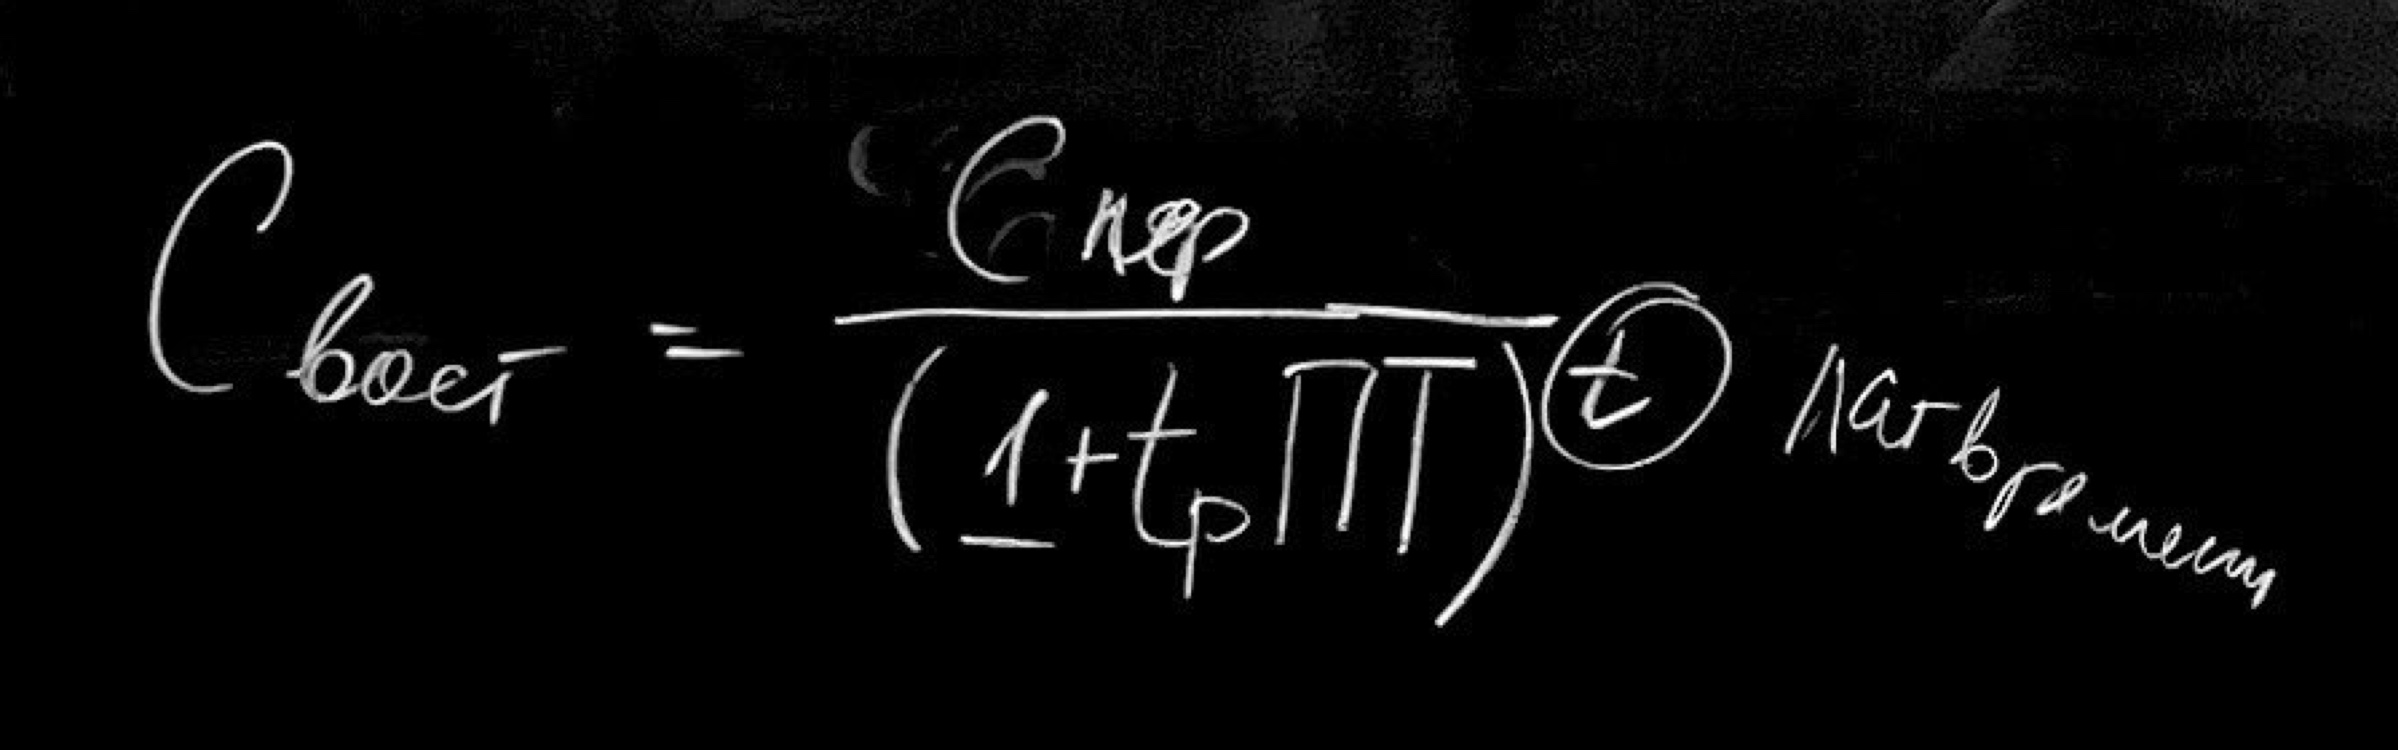 C вост = C пер / (1 + t р ПТ)^t лаг времени